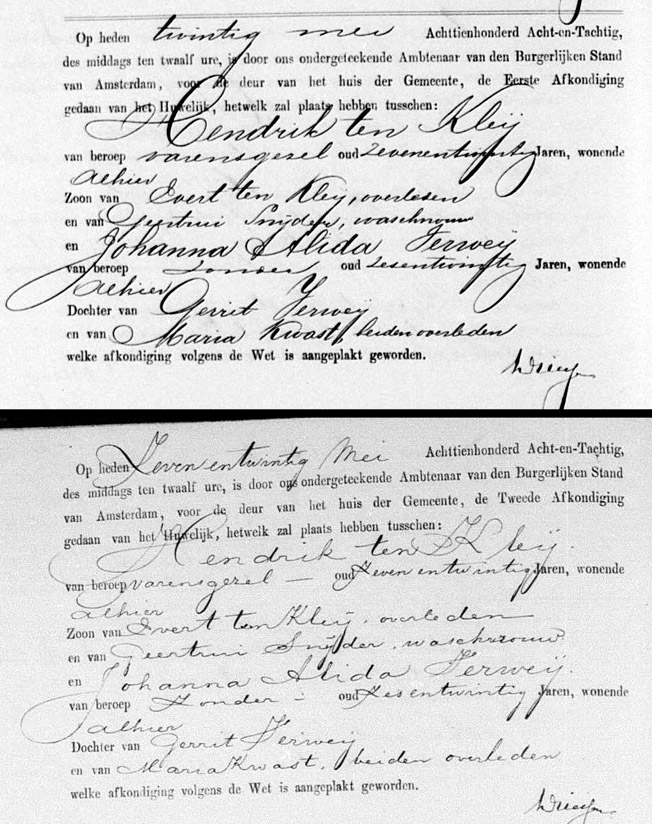 Op heden twintig mei Achttienhonderd Acht-en-Tachtig,
des middags ten twaalf ure, is door ons ondergeteekende Ambtenaar van den Burgerlijken Stand
van Amsterdam, voor de deur van het huis der Gemeente, de Eerste Afkondiging
gedaan van het Huwelijk, hetwelk zal plaats hebben tusschen:
Hendrik ten Kleij
van beroep varensgezel oud zevenentwintig Jaren, wonende
alhier
Zoon van Evert ten Kleij, overleden
en van Geertrui Snijder, waschvrouw
en Johanna Alida Terweij
van beroep zonder, oud zesentwintig Jaren, wonende
alhier
Dochter van Gerrit Terweij
en van Maria Kwast, beiden overleden
welke afkondiging volgens de Wet is aangeplakt geworden.
Op heden Zevenentwintig Mei Achttienhonderd Acht-en-Tachtig,
des middags ten twaalf ure, is door ons ondergeteekende Ambtenaar van den Burgerlijken Stand
van Amsterdam, voor de deur van het huis der Gemeente, de Tweede Afkondiging
gedaan van het Huwelijk, hetwelk zal plaats hebben tusschen:
Hendrik ten Kleij.
van beroep varensgezel — oud Zevenentwintig Jaren, wonende
alhier
Zoon van Evert ten Kleij, overleden
en van Geertrui Snijder, waschvrouw
en Johanna Alida Terweij.
van beroep Zonder – oud Zesentwintig Jaren, wonende
alhier
Dochter van Gerrit Terweij
en van Maria Kwast, beiden overleden
welke afkondiging volgens de Wet is aangeplakt geworden.